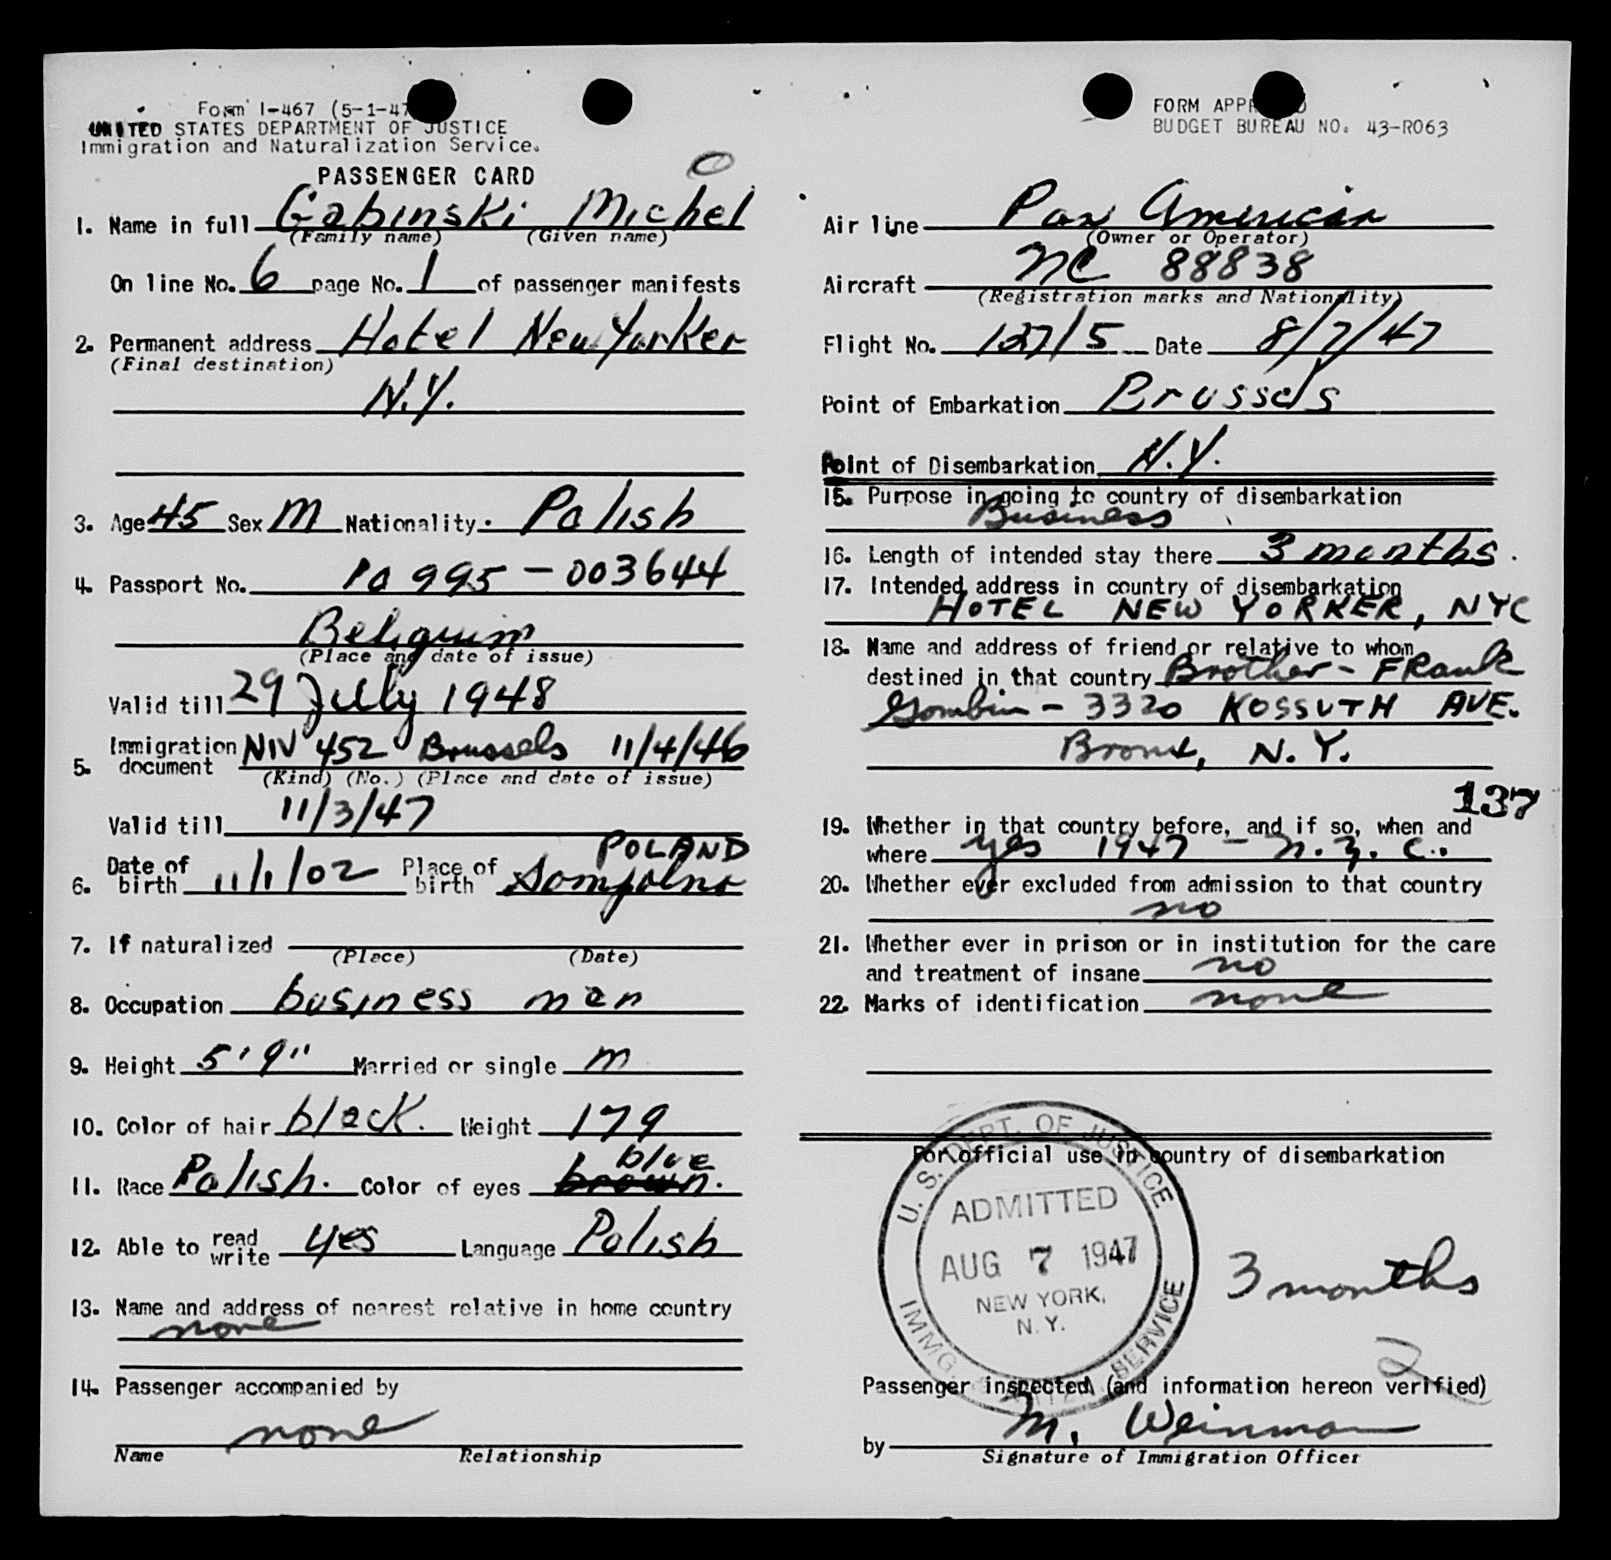 Form I-467 (5-1-47
UNITED STATES DEPARTMENT OF JUSTICE
Immigration and Naturalization Service.
PASSENGER CARD
1. Name in full Gabinski Michel
(Family name) (Given name)
On line No. 6 page No. 1 of passenger manifests
2. Permanent address Hotel New Yorker
(Final destination)
N.Y.
3. Age 45 Sex M Nationality. Polish
4. Passport No. 10 995 - 003644
Beligium
(Place and date of issue)
Valid till 29 July 1948
5. Immigration document NIV 452 Brussels 11/4/46
(Kind) (No.) (Place and date of issue)
Valid till 11/3/47
POLAND
6. Date of birth 11/1/02 Place of birth Sompolno
7. If naturalized
(Place) (Date)
8. Occupation business man
9. Height 5'9" Married or single m
10. Color of hair black. Weight 179
blue
11. Race Polish. Color of eyes brown.
12. Able to read write yes Language Polish
13. Name and address of nearest relative in home country
none
14. Passenger accompanied by
none
Name Relationship
FORM APPR
BUDGET BUREAU NO. 43-R063
Air line Pan American
(Owner or Operator)
Aircraft NC 88838
(Registration marks and Nationality)
Flight No. 127/5 Date 8/7/47
Point of Embarkation Brussels
Point of Disembarkation N.Y.
15. Purpose in going to country of disembarkation
Business
16. Length of intended stay there 3 months.
17. Intended address in country of disembarkation
HOTEL NEW YORKER, NYC
18. Name and address of friend or relative to whom
destined in that country Brother - FRank
Gombin - 3320 KOSSUTH AVE.
Bronx, N.Y.
137
19. Whether in that country before, and if so, when and
where yes 1947 - N.Y.C.
20. Whether ever excluded from admission to that country
no
21. Whether ever in prison or in institution for the care
and treatment of insane no
22. Marks of identification none
For official use in country of disembarkation
U. S. DEPT. OF JUSTICE
ADMITTED
AUG 7 1947
NEW YORK,
N. Y.
IMMG SERVICE
3 months
2
Passenger inspected (and information hereon verified)
by M. Weinman
Signature of Immigration Officer